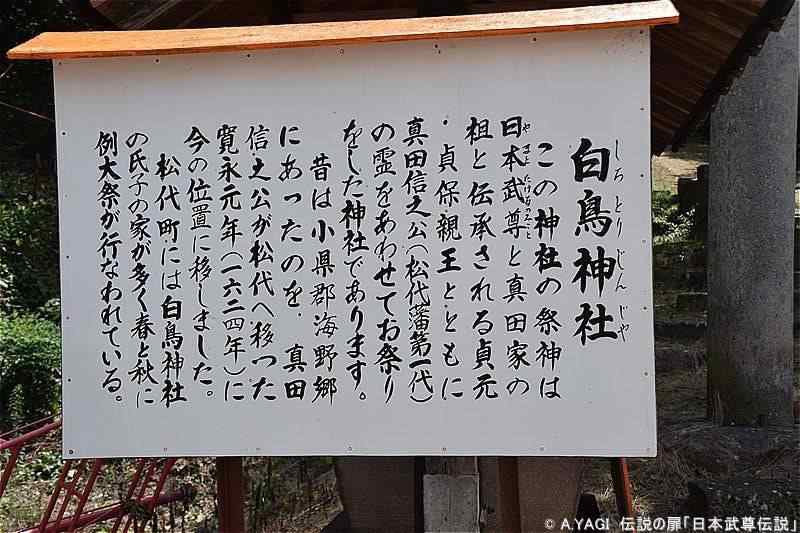 白鳥神社
しろとりじんじや
この神社の祭神は
日本武尊と真田家の
やまとたけるのみこと
祖と伝承される貞元
・貞保親王とともに
真田信之公(松代藩第一代)
の霊をあわせてお祭り
をした神社であります。
昔は小県郡海野郷
にあったのを、真田
信之公が松代へ移った
寛永元年(一六二四年)に
今の位置に移しました。
松代町には白鳥神社
の氏子の家が多く春と秋に
例大祭が行なわれている。
© A.YAGI 伝説の扉「日本武尊伝説」